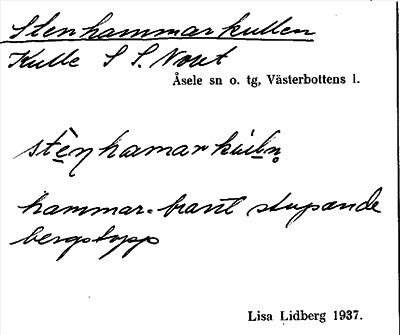 Stenhammarkullen
Kulle S S. Noret
Åsele sn o. tg, Västerbottens l.
stèn hamarkúln̥
hammar = brant stupande
bergstopp
Lisa Lidberg 1937.